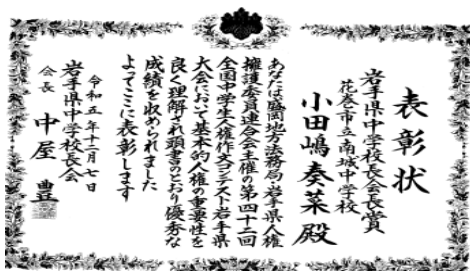 表彰状
岩手県中学校長会長賞
花巻市立南城中学校
小田嶋奏菜殿
あなたは盛岡地方法務局・岩手県人権
擁護委員連合会主催の第四十二回
全国中学生人権作文コンテスト岩手県
大会において基本的人権の重要性を
良く理解され頭書のとおり優秀な
成績を収められました
よってここに表彰します
令和五年十二月七日
岩手県中学校長会
会長 中屋 豊